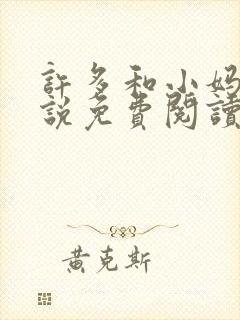 許多和小妈
說免費閱讀
黃克斯